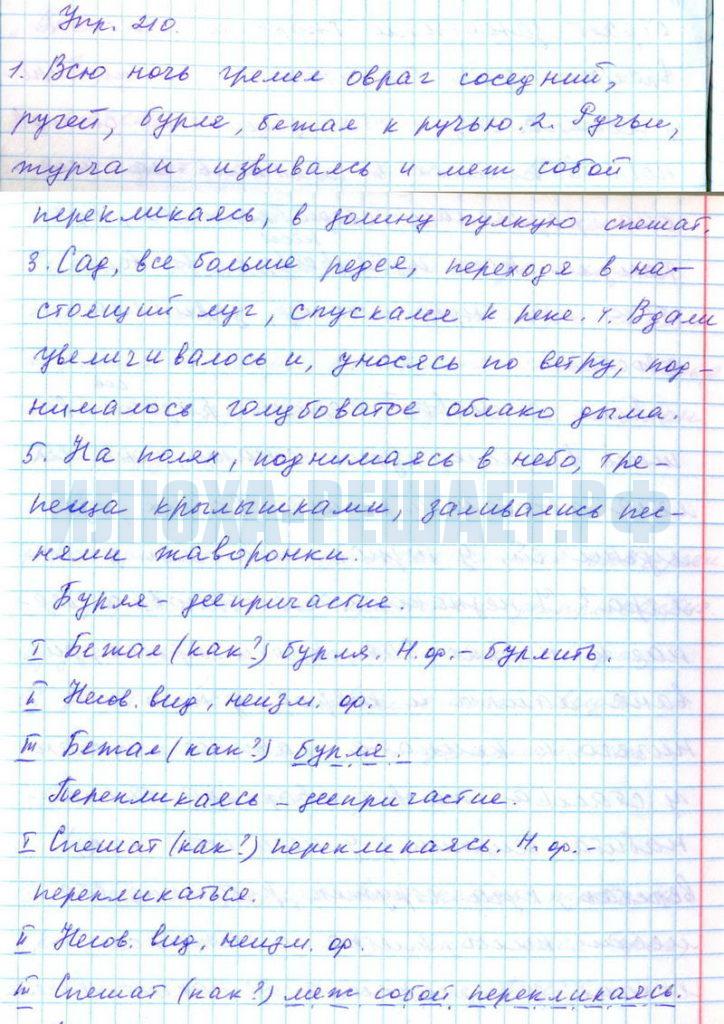 Упр. 210.
1. Всю ночь гремел овраг соседний,
ручей, бурля, бежал к ручью. 2. Ручьи,
журча и извиваясь и меж собой
перекликаясь, в долину гулкую спешат.
3. Сад, все больше редея, переходя в на-
стоящий луг, спускался к реке. 4. Вдали
увеличивалось и, уносясь по ветру, под-
нималось голубоватое облако дыма.
5. На полях, поднимаясь в небо, тре-
пеща крылышками, заливались пес-
ИЛЮХА-РЕШАЕТ.РФ
нями жаворонки.
Бурля – деепричастие.
I Бежал (как?) бурля. Н.ф. – бурлить.
II Несов. вид, неизм. ф.
III Бежал (как?) бурля.
Перекликаясь – деепричастие.
I Спешат (как?) перекликаясь. Н.ф. –
перекликаться.
II Несов. вид, неизм. ф.
III Спешат (как?) меж собой перекликаясь.